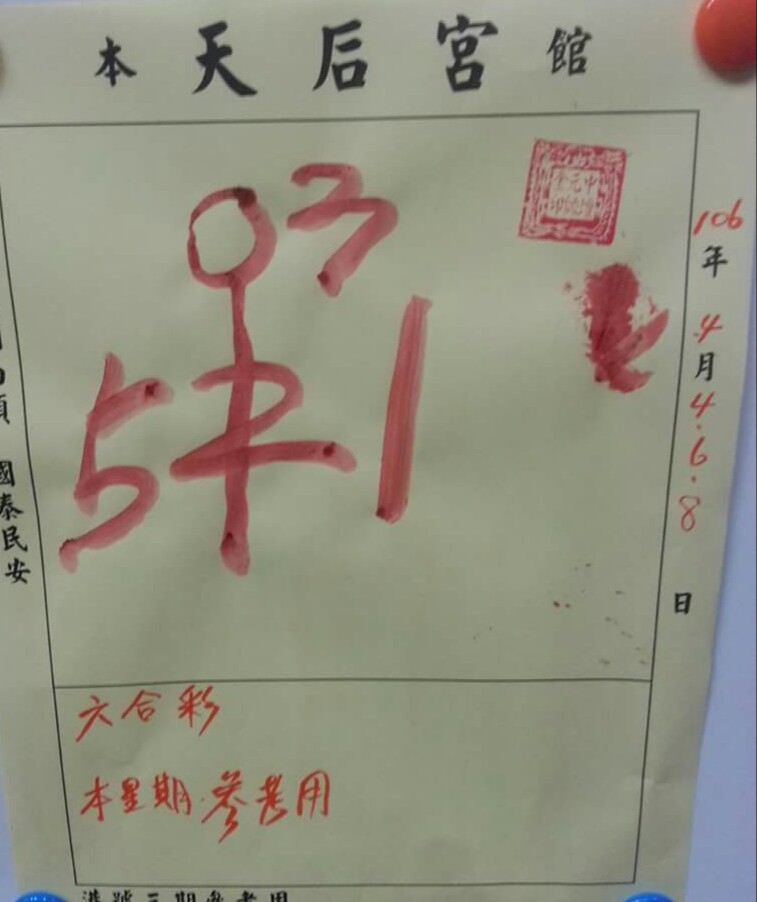 本天后宮館
106年4月4.6.8日
03
5 1
國泰民安
六合彩
本星期.參考用
港號三期參考用